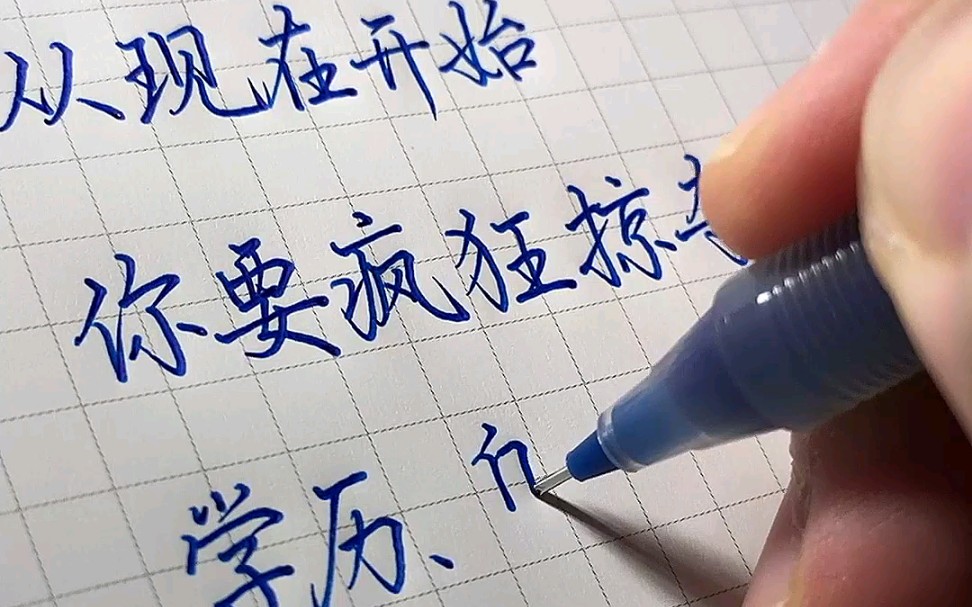 从现在开始
你要疯狂掠
学历、